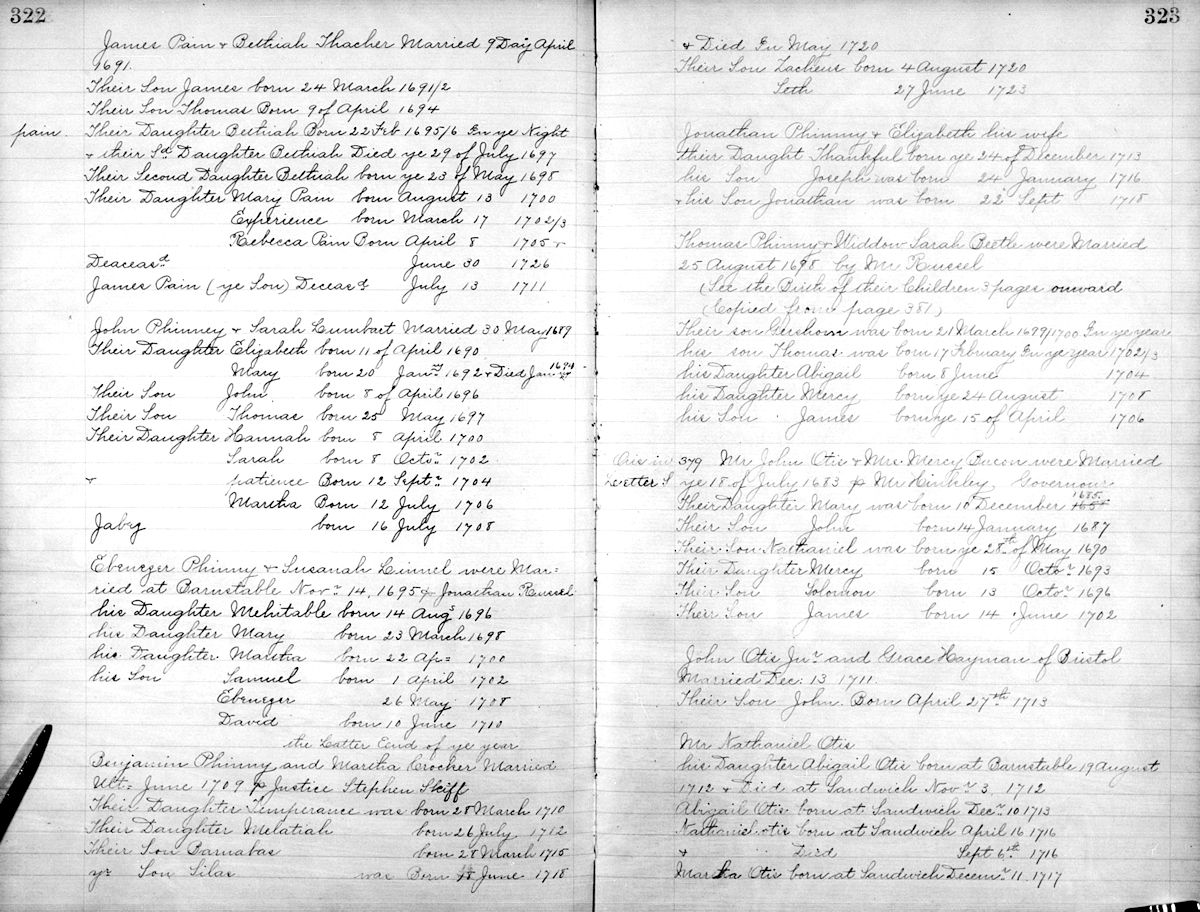 322
James Pain & Bethiah Thacher Married 9 Day April
1691.
Their Son James born 24 March 1691/2
Their Son Thomas Born 9 of April 1694
pain. Their Daughter Bethiah Born 22 Feb 1695/6 In ye Night
& their Sd Daughter Bethiah Died ye 29 of July 1697
Their Second Daughter Bethiah born ye 23 of May 1698
Their Daughter Mary Pain born August 13 1700
Experience born March 17 1702/3
Rebecca Pain Born April 8 1705 &
Deaceasd June 30 1726
James Pain (ye Son) Deceasd July 13 1711
John Phinney & Sarah Lumbart Married 30 May 1689
Their Daughter Elizabeth born 11 of April 1690
Mary born 20 Janry 1692 & Died Jan
Their Son John born 8 of April 1696
Their Son Thomas born 25 May 1697
Their Daughter Hannah born 8 April 1700
Sarah born 8 Octor 1702
& patience Born 12 Septr 1704
Martha Born 12 July 1706
Jabez born 16 July 1708
Ebenezer Phinny & Susanah Linnel were Mar=
ried at Barnstable Novr 14, 1695 p Jonathan Russel
his Daughter Mehitable born 14 Augs 1696
his Daughter Mary born 23 March 1698
his Daughter Martha born 22 Ap= 1700
his Son Samuel born 1 April 1702
Ebenezer 26 May 1708
David born 10 June 1710
the Latter Eend of ye year
Benjamin Phinny and Martha Crocher Married
Ult= June 1709 p Justice Stephen Skiff
Their Daughter Temperance was born 28 March 1710
Their Daughter Melatiah born 26 July 1712
Their Son Barnabas born 28 March 1715
yr Son Silas was Born June 1718
323
& Died In May 1720
Their Son Zacheus born 4 August 1720
Seth 27 June 1723
Jonathan Phinny & Elizabeth his wife
their Daught Thankful born ye 24 of December 1713
his Son Joseph was born 24 January 1716
& his Son Jonathan was born 22 Sept 1718
Thomas Phinny & Widdow Sarah Beetle were Married
25 August 1698 by Mr Russel
(See the Birth of their Children 3 pages onward
(Copied from page 381)
Their son Gershom was born 21 March 1699/1700 In ye year
his son Thomas was born 17 February In ye year 1702/3
his Daughter Abigail born 8 June 1704
his Daughter Mercy born ye 24 August 1708
his Son James born ye 15 of April 1706
Otis in 379 Mr John Otis & Mrs Mercy Bacon were Married
Letter S ye 18 of July 1683 p Mr Hinkley, Governour
Their Daughter Mary was born 10 December 1685
Their Son John born 14 January 1687
Their Son Nathaniel was born ye 28th of May 1690
Their Daughter Mercy born 15 Octor 1693
Their Son Solomon born 13 Octor 1696
Their Son James born 14 June 1702
John Otis Junr and Grace Hayman of Bristol
Married Dec: 13 1711.
Their Son John Born April 27th 1713
Mr Nathaniel Otis
his Daughter Abigail Otis born at Barnstable 19 August
1712 & Died at Sandwich Novr 3, 1712
Abigail Otis born at Sandwich Decr 10 1713
Nathaniel otis born at Sandwich April 16 1716
& " " Died Sept 6th 1716
Martha Otis born at Sandwich Decemr 11 1717